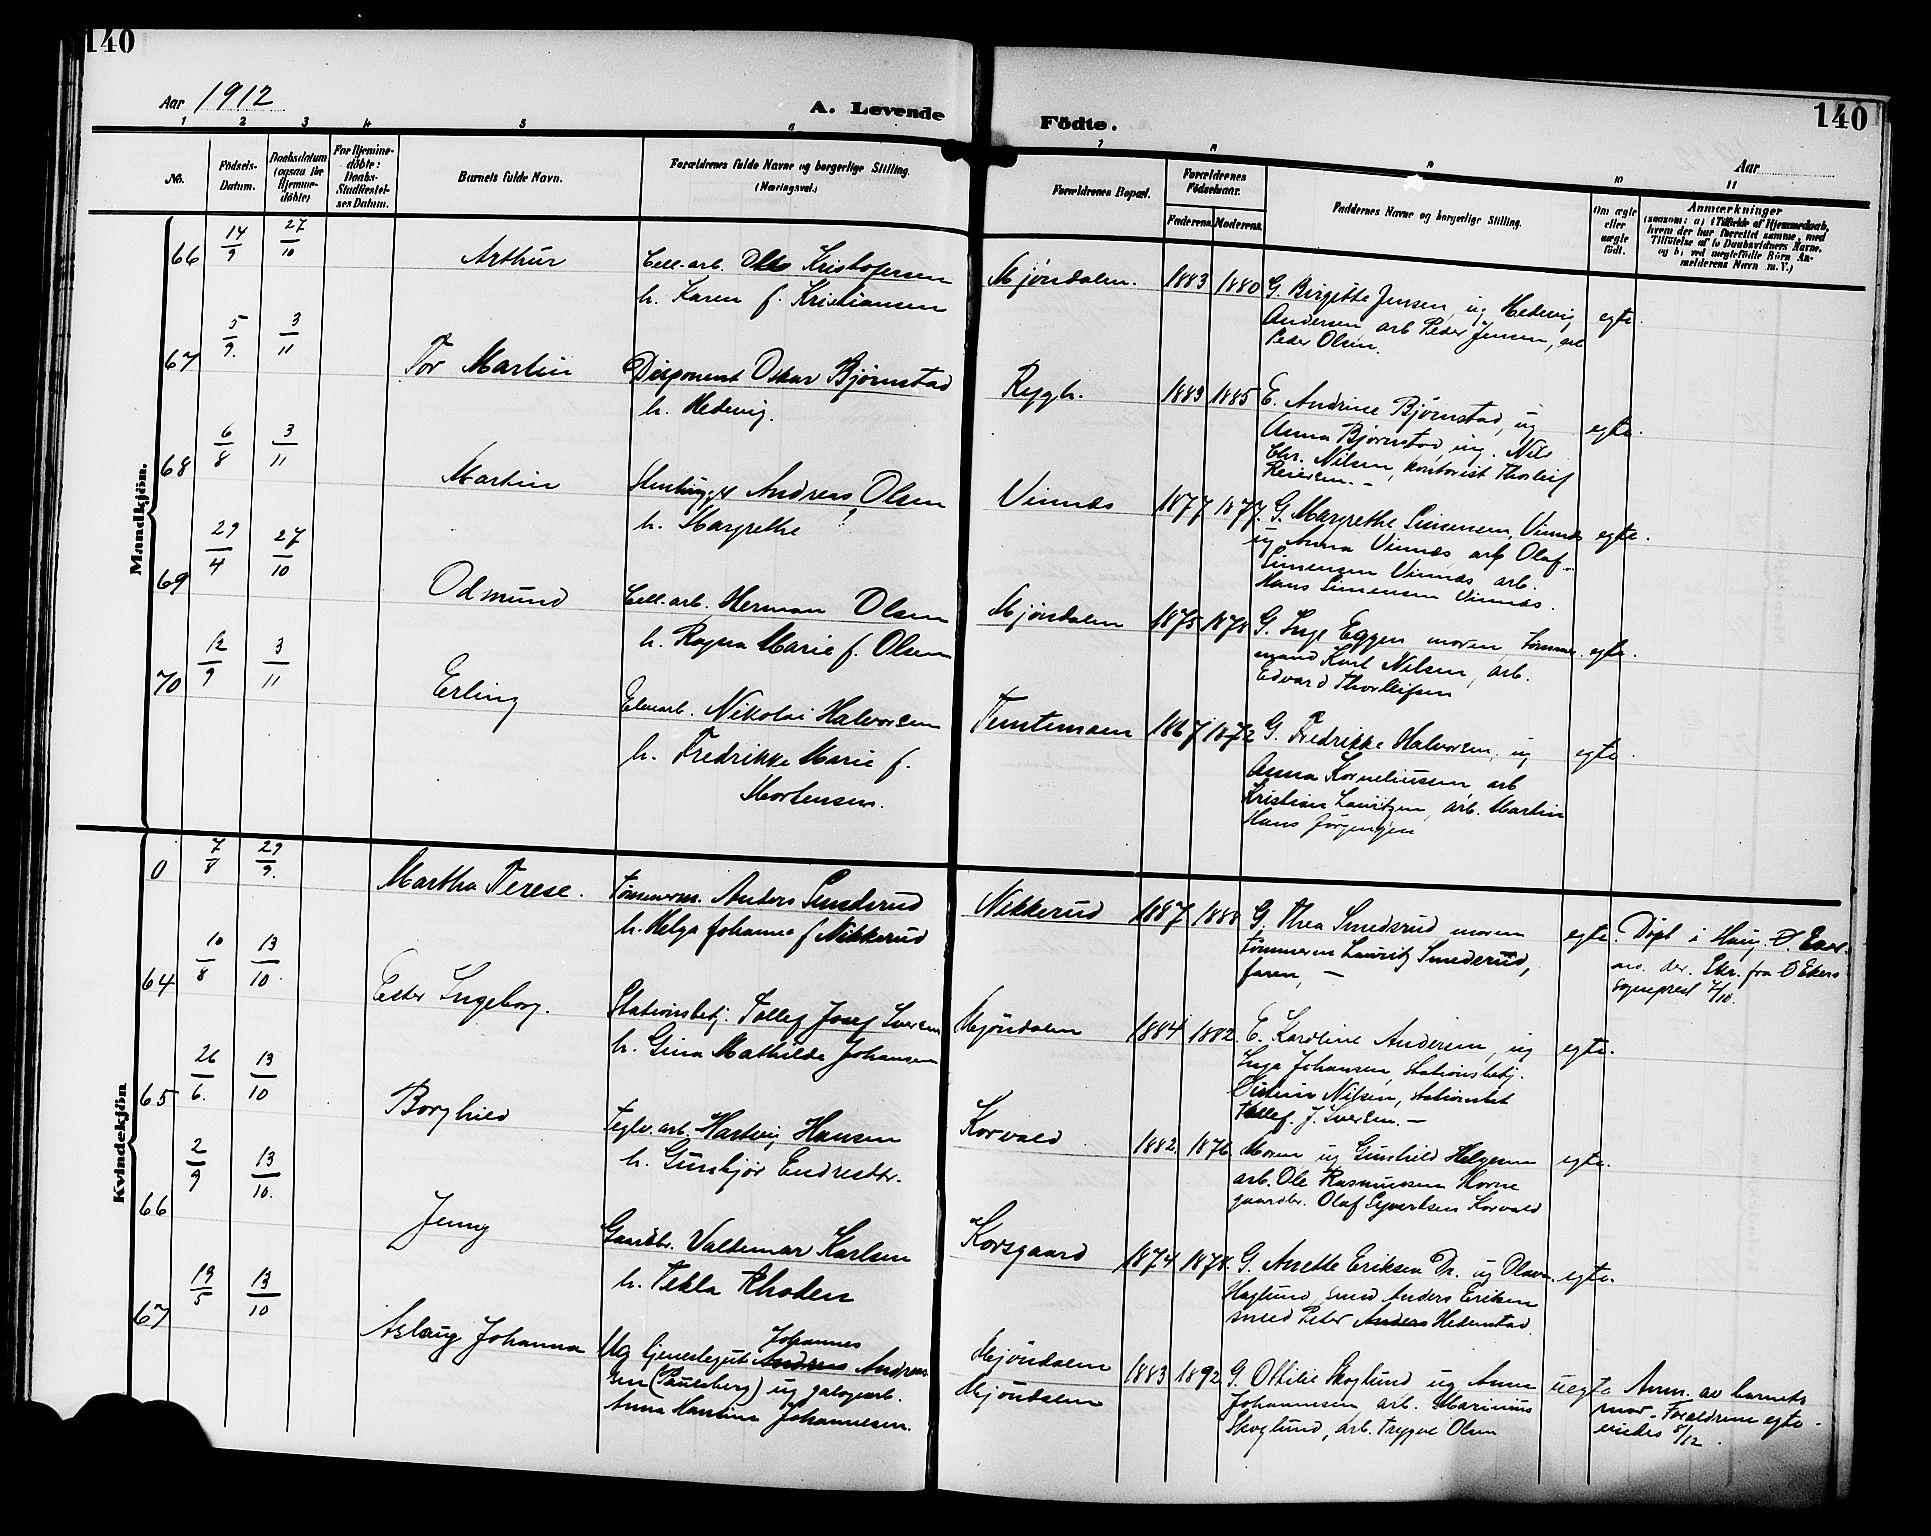 140
Aar 1912
A. Levende
Födte.
140
Aar
1 2 3 4 5 6 7 8 9 10 11
No.
Födsels-
Datum.
Daabsdatum
(ogsaa for
Hjemme-
döbte)
For Hjemme-
döbte:
Daabs-
Stadfæstel-
ses Datum.
Barnets fulde Navn.
Forældrenes fulde Navne og borgerlige Stilling.
(Næringsvei.)
Forældrenes Bopæl.
Forældrenes
Födselsaar.
Faderens. Moderens.
Faddernes Navne og borgerlige Stilling.
Om ægte
eller
uægte
födt.
Anmærkninger
(saasom: a) i Tilfælde af Hjemmedaab,
hvem der har forrettet samme, med
Tilføielse af to Daabsvidners Navne,
og b) ved uægtefödte Börn An-
melderens Navn m. V.)
Mandkjön.
66 14/9 27/10 Arthur
Cell.arb. Otto Kristofersen
h. Karen f. Kristiansen
Mjöndalen. 1883 1880
G. Birgitte Jensen, ug Hedevig
Andersen arb Peder Jensen, arb
Peder Olsen.
egte.
67 5/9. 3/11 Tor Martin
Disponent Oskar Bjørnstad
h. Hedevig.
Rygh. 1883 1885
E. Andrine Bjørnstad, ug
Anna Bjørnstad, ug. Nils
Chr. Nilsen, kontorist Thorleif
Reiersen. -
egte.
68 6/8 3/11 Martin
Stenhugger Andreas Olsen
h. Margrethe
Vinnæs 1877 1877.
G. Margrethe Simensen, Vinnæs
ug Anna Vinnæs, arb Olaf
Simensen Vinnæs, arb.
Hans Simensen Vinnæs.
egte.
69 29/4 27/10 Odmund
Cell.arb. Herman Olsen
h. Ragna Marie f. Olsen
Mjöndalen 1875 1878
G. Inge Eggen moren Tömmer-
mand Karl Nilsen, arb.
Edvard Thorleifsen
egte.
70 12/9 3/11 Erling
Nikolai Halvorsen
h. Fredrikke Marie f.
Mortensen.
1867 1872
G. Fredrikke Halvorsen, ug
Anna Korneliussen, arb
Kristian Lauritzen, arb. Martin
Hans Jörgensen
egte.
Kvindekjön
0 7/8 29/9. Martha Terese.
Tömmerm. Anders Smedsrud
h. Helga Johanne f Nikkerud
Nikkerud 1887 1888
G. Thea Smedsrud moren
tömmerm Lauritz Smedsrud,
faren, -
egte.
Döpt i Haug Ö. Eker
Skr. fra Ö Ekers
sogneprest 7/10.
64 10/8 13/10. Ester Ingeborg.
Stationsbetj. Tollef Josef Iversen
h. Gina Mathilde Johansen
Mjöndalen 1884 1882.
E. Karoline Andersen, ug
Inga Johansen, Stationsbetj.
Nilsen, stationsbet
Tollef. J. Iversen. -
egte.
65 26/6. 13/10 Borghild
Teglv.arb. Hartvig Hansen
h. Gunbjør Endresdtr.
Korvald 1882. 1876
Moren ug Gunhild Helgesen
arb. Ole Rasmussen Horne
gaardbr. Olaf Syvertsen Korvald
egte.
66 2/9 13/10. Jenny
Gaardbr. Valdemar Karlsen
h. Tekla Rhoden
Korsgaard 1874 1878.
G. Anette Eriksen Dr. ug Olava
Haglund, smed Anders Eriksen
smed Peter Anders Hedenstad.
egte.
67 19/5 13/10 Aslaug Johanna
Ug tjenestegut Andreas Johannes Andrea-
sen (Paulsberg) ug galogearb.
Anna Hantina Johannesen.
Mjöndalen
Mjöndalen
1883 1892
G. Ottilie Skoglund ug Anna
Johannesen, arb. Marinius
Skoglund, arb. Trygve Olsen
uegte
Anm. av barnets
mor. Foreldrene egte-
viedes 8/12.